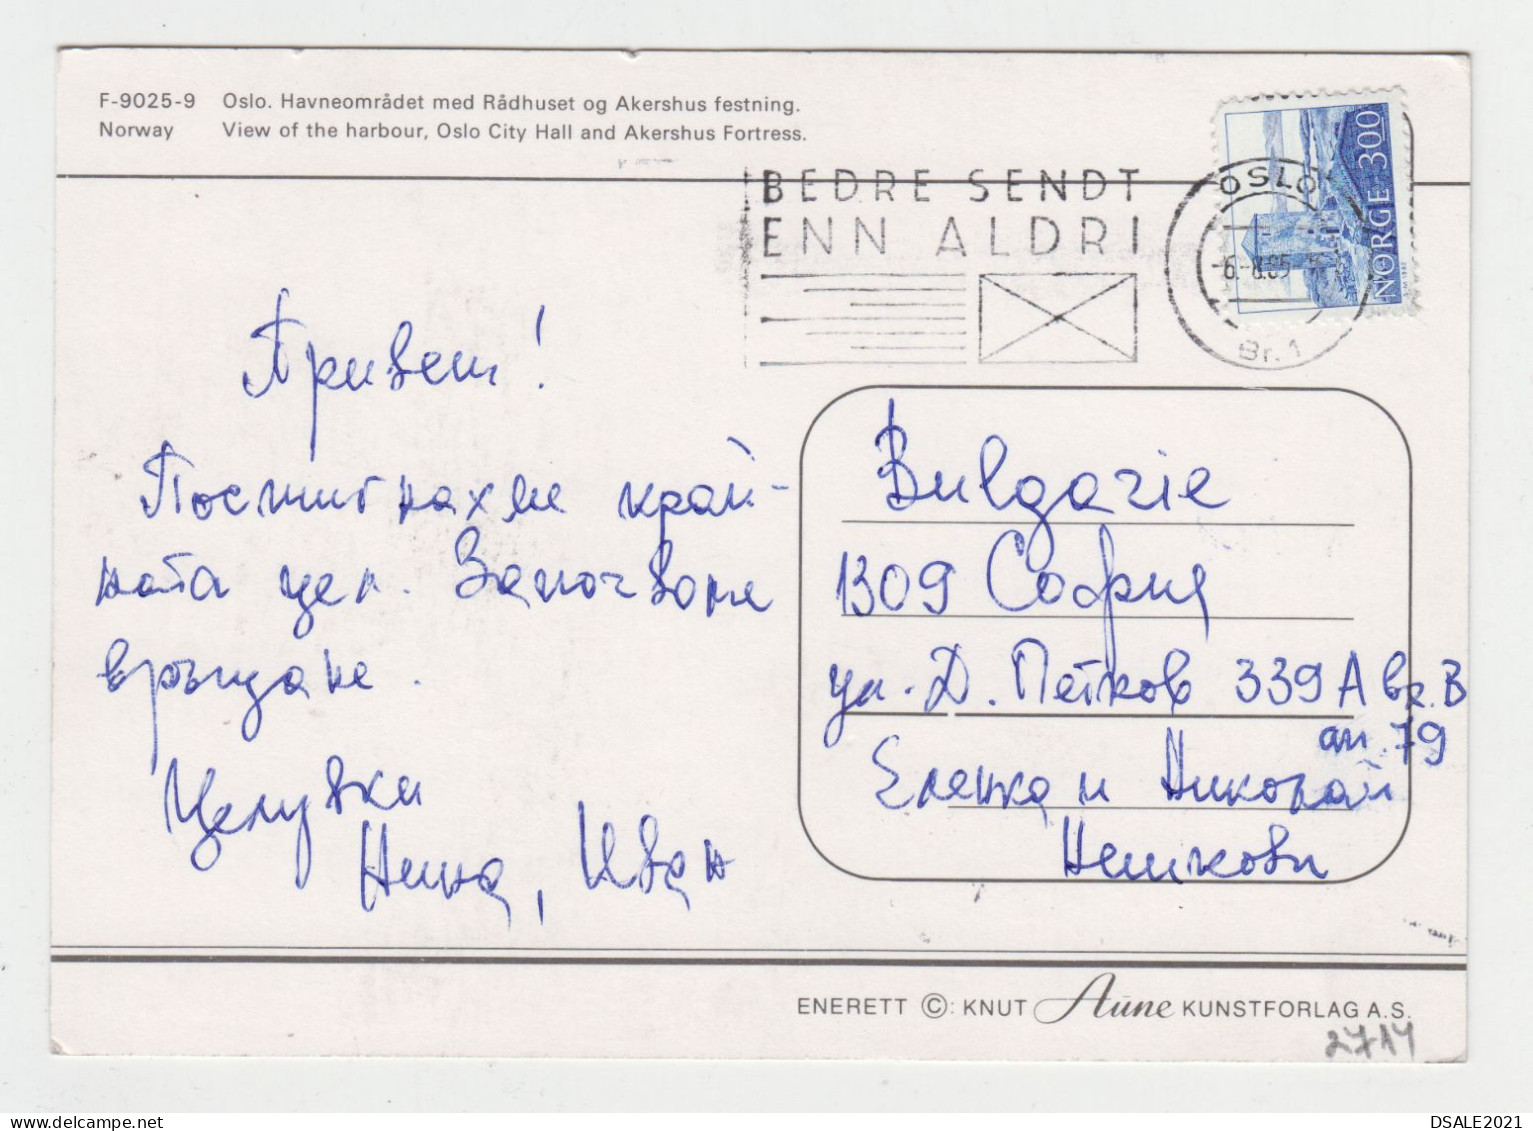 F-9025-9 Oslo. Havneområdet med Rådhuset og Akershus festning.
Norway View of the harbour, Oslo City Hall and Akershus Fortress.
BEDRE SENDT
ENN ALDRI
OSLO
6.-8.85
Br. 1
NORGE 3.00
Привет!
Постигнахме край-
ната цел. Започваме
връщане.
Целувки
Нина, Иван
Bulgarie
1309 София
ул. Д. Петков 339А вх. В
ап. 79
Еленка и Николай
Нешкови
ENERETT ©: KNUT Aune KUNSTFORLAG A.S.
2714
DSALE2021